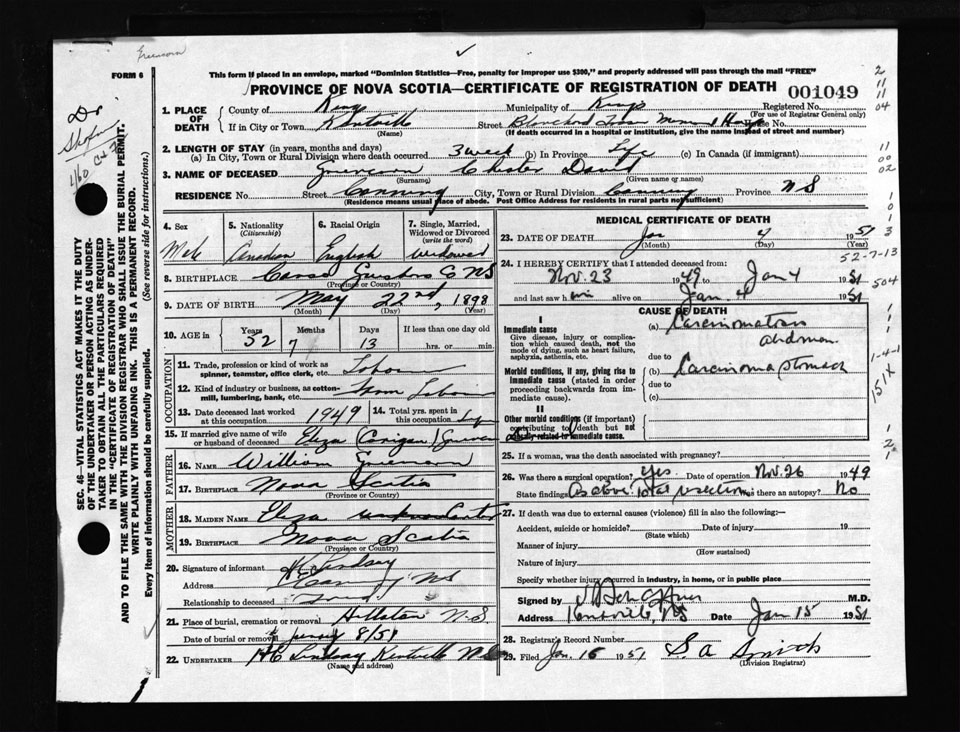 FORM 6
This form if placed in an envelope, marked "Dominion Statistics—Free, penalty for improper use $300," and properly addressed will pass through the mail "FREE"
PROVINCE OF NOVA SCOTIA—CERTIFICATE OF REGISTRATION OF DEATH 001049
1. PLACE OF DEATH
County of Kings Municipality of Kings Registered No.
(For use of Registrar General only)
If in City or Town Kentville Street House No.
(Name) (If death occurred in a hospital or institution, give the name instead of street and number)
2. LENGTH OF STAY (in years, months and days)
(a) In City, Town or Rural Division where death occurred 3 week (b) In Province Life (c) In Canada (if immigrant)
3. NAME OF DECEASED Chester David
(Surname) (Given name or names)
RESIDENCE No. Street Canning City, Town or Rural Division Canning Province NS
(Residence means usual place of abode. Post Office Address for residents in rural parts not sufficient)
4. Sex Male
5. Nationality (Citizenship) Canadian
6. Racial Origin English
7. Single, Married, Widowed or Divorced (write the word) Widowed
8. BIRTHPLACE Canso NS
(Province or Country)
9. DATE OF BIRTH May 22nd, 1898
(Month) (Day) (Year)
10. AGE in Years 52 Months 7 Days 13 If less than one day old
hrs. or min.
OCCUPATION
11. Trade, profession or kind of work as spinner, teamster, office clerk, etc. Labor
12. Kind of industry or business, as cotton-mill, lumbering, bank, etc. Labor
13. Date deceased last worked at this occupation 1949 14. Total yrs. spent in this occupation Life
15. If married give name of wife or husband of deceased Eliza
FATHER
16. NAME William
17. BIRTHPLACE Nova Scotia
(Province or Country)
MOTHER
18. MAIDEN NAME Eliza
19. BIRTHPLACE Nova Scotia
(Province or Country)
20. Signature of informant Lindsay
Address Canning NS
Relationship to deceased
21. Place of burial, cremation or removal N.S
Date of burial or removal 8/51
22. UNDERTAKER H E Lindsay Kentville N.S
(Name and address)
MEDICAL CERTIFICATE OF DEATH
23. DATE OF DEATH Jan 4 1951
(Month) (Day) (Year)
52-7-13
24. I HEREBY CERTIFY that I attended deceased from
Nov. 23 1949 to Jan 4 1951
and last saw him alive on Jan. 4 1951
504
CAUSE OF DEATH
I
Immediate cause
Give disease, injury or complication which caused death, not the mode of dying, such as heart failure, asphyxia, asthenia, etc.
(a)
abdomen
due to
Morbid conditions, if any, giving rise to immediate cause (stated in order proceeding backwards from immediate cause).
(b) Carcinoma stomach
due to
(c)
151X
II
Other morbid conditions (if important) contributing to death but not causally related to immediate cause.
25. If a woman, was the death associated with pregnancy?
26. Was there a surgical operation? Yes Date of operation Nov. 26 1949
State findings As above. Total resection Was there an autopsy? No
27. If death was due to external causes (violence) fill in also the following:—
Accident, suicide or homicide? Date of injury 19
(State which)
Manner of injury
(How sustained)
Nature of injury
Specify whether injury occurred in industry, in home, or in public place
Signed by M.D.
Address Kentville, NS Date Jan 15 1951
28. Registrar's Record Number
29. Filed Jan. 16 1951 S. A Smith
(Division Registrar)
SEC. 46—VITAL STATISTICS ACT MAKES IT THE DUTY
OF THE UNDERTAKER OR PERSON ACTING AS UNDER-
TAKER TO OBTAIN ALL THE PARTICULARS REQUIRED
IN THE "CERTIFICATE OF REGISTRATION OF DEATH"
AND TO FILE THE SAME WITH THE DIVISION REGISTRAR WHO SHALL ISSUE THE BURIAL PERMIT.
WRITE PLAINLY WITH UNFADING INK. THIS IS A PERMANENT RECORD.
Every item of information should be carefully supplied. (See reverse side for instructions.)